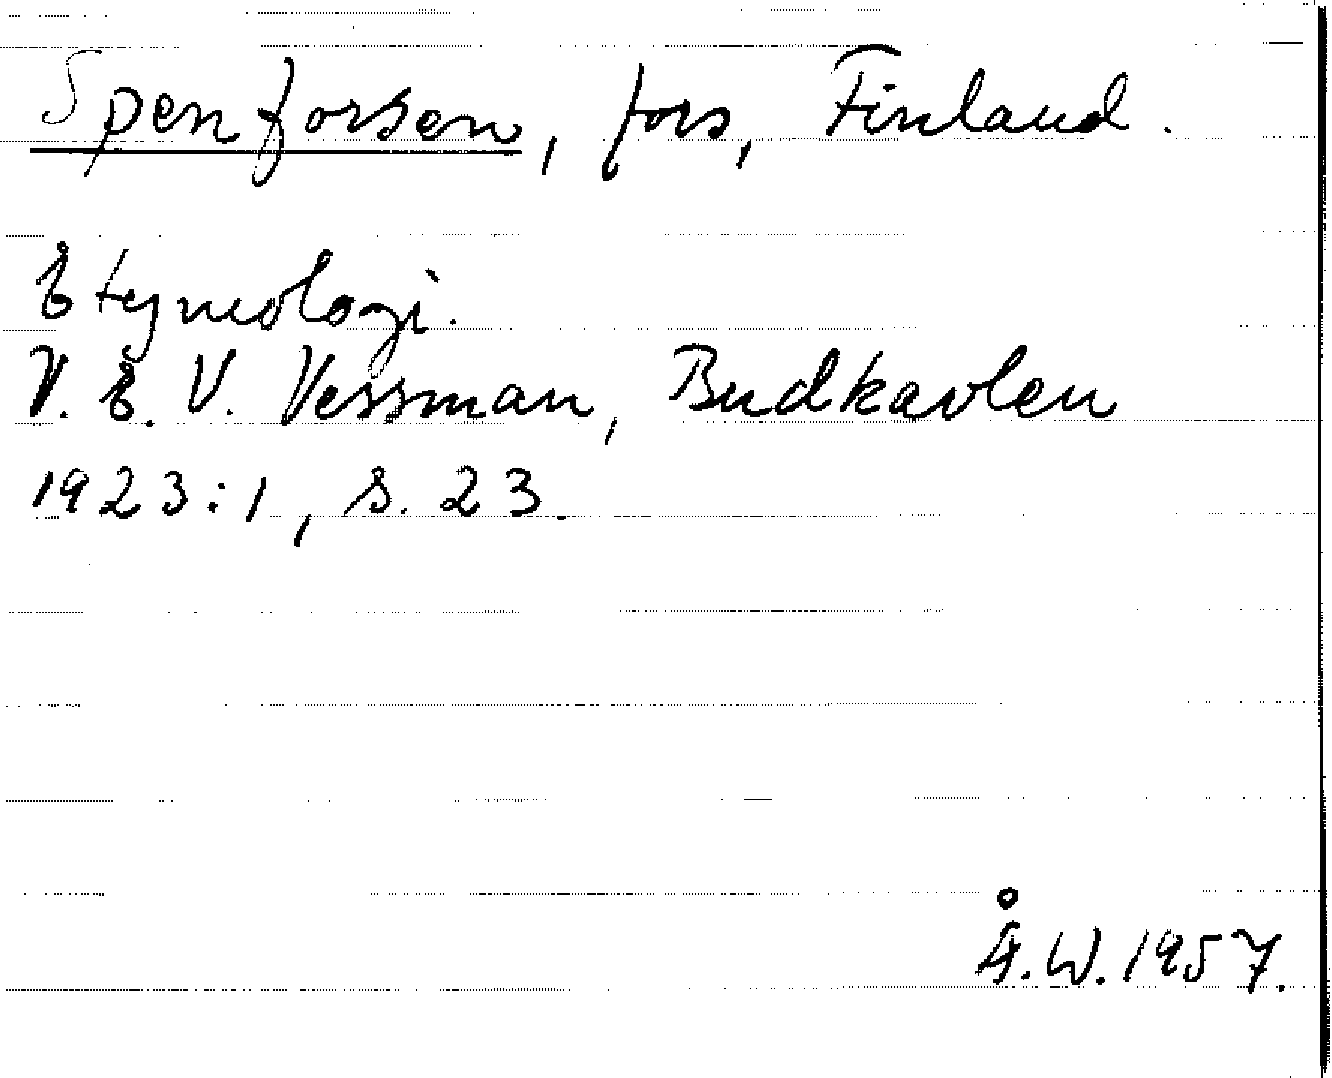 Spenforsen, fors, Finland.
Etymologi.
V. E. V. Wessman, Budkavlen
1923:1, s. 23.
Å.W. 1957.